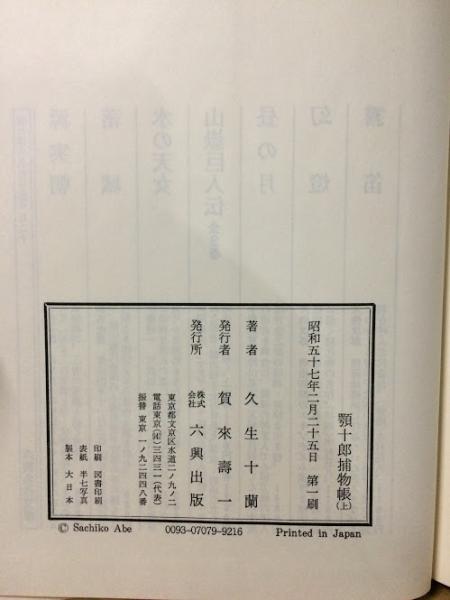 顎十郎捕物帳(上)
昭和五十七年二月二十五日 第一刷
著者 久生十蘭
発行者 賀來壽一
発行所 株式会社 六興出版
東京都文京区水道二ノ九ノ二
電話東京(代)三四三一(代表)
振替 東京 一ノ九二四四八番
印刷 図書印刷
表紙 半七写真
製本 大日本
© Sachiko Abe 0093-07079-9216 Printed in Japan
霧笛
幻燈
昼の月
山嶽巨人伝 全3巻
水の天女
落城
源実朝